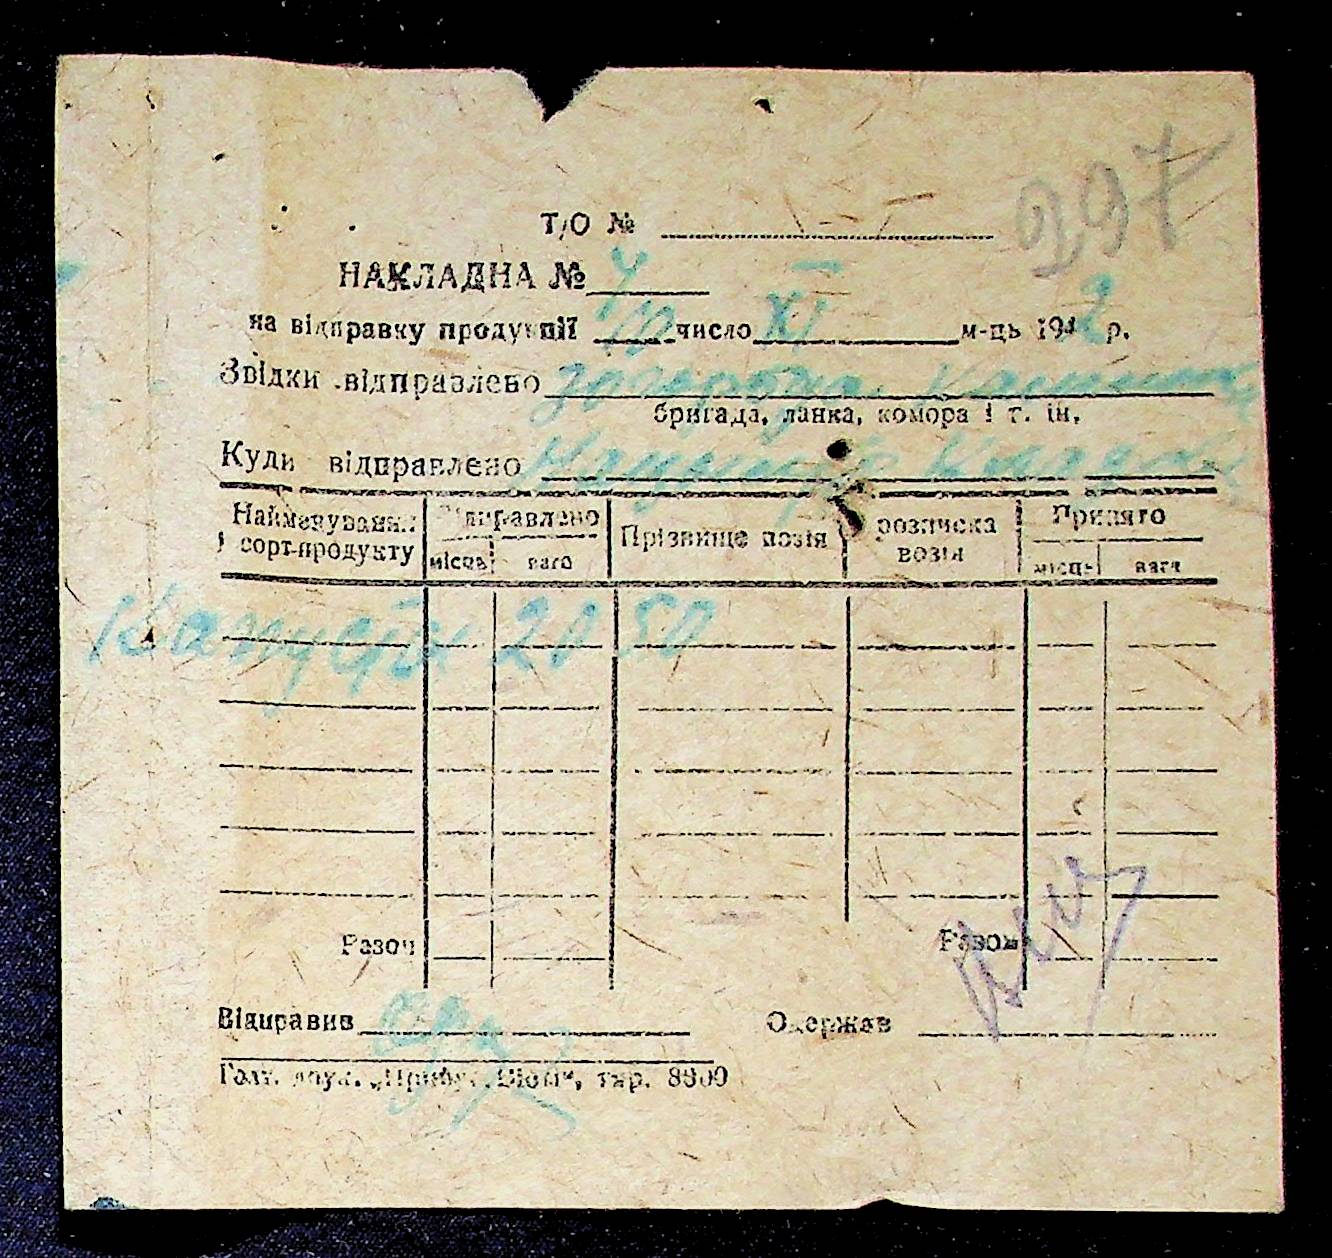 297
Т/О №
НАКЛАДНА № 4
на відправку продукції 10 число XI м-ць 1942 р.
Звідки відправлено
бригада, ланка, комора і т. ін.
Куди відправлено
Найменування і сорт продукту Відправлено місць вага Прізвище возія розписка возія Прийнято місць вага
Капуста 20 50
Разом Разом
Відправив Одержав
Голт. друк. тир. 8000